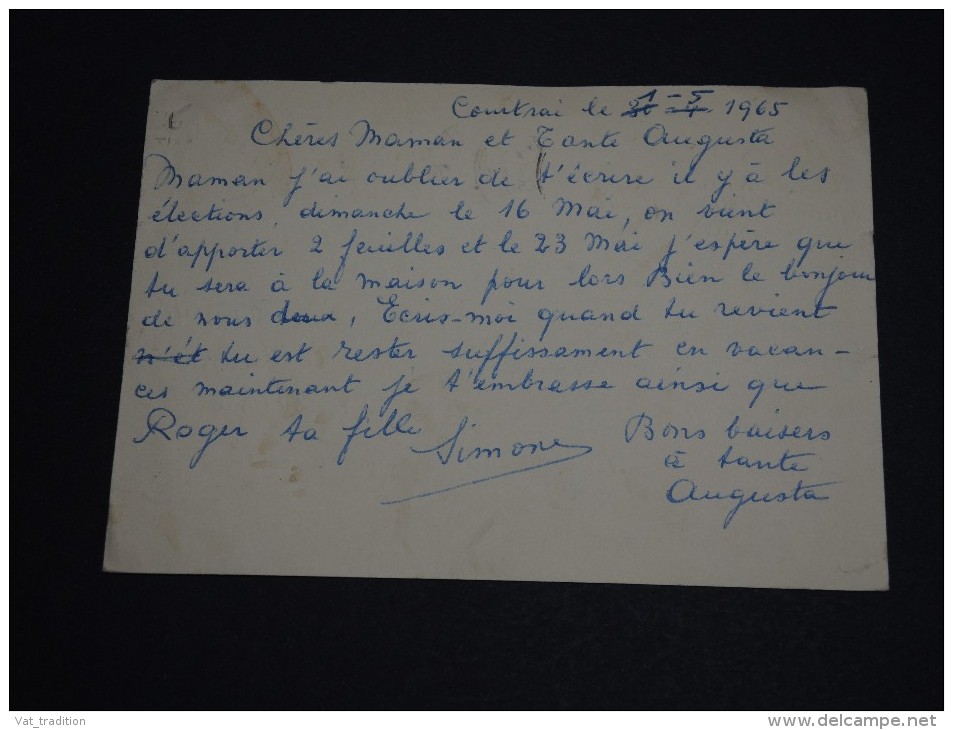 Courtrai le 1-5 1965
Chères Maman et Tante Augusta
Maman j'ai oublier de t'écrire il y à les
élections dimanche le 16 Mai, on vient
d'apporter 2 feuilles et le 23 Mai j'espère que
tu sera à la maison pour lors Bien le bonjour
de nous deux, Ecris-moi quand tu revient
n'ét tu est rester suffissament en vacan-
ces maintenant je t'embrasse ainsi que
Roger ta fille Simone
Bons baisers
à tante
Augusta
Vat_tradition
www.delcampe.net